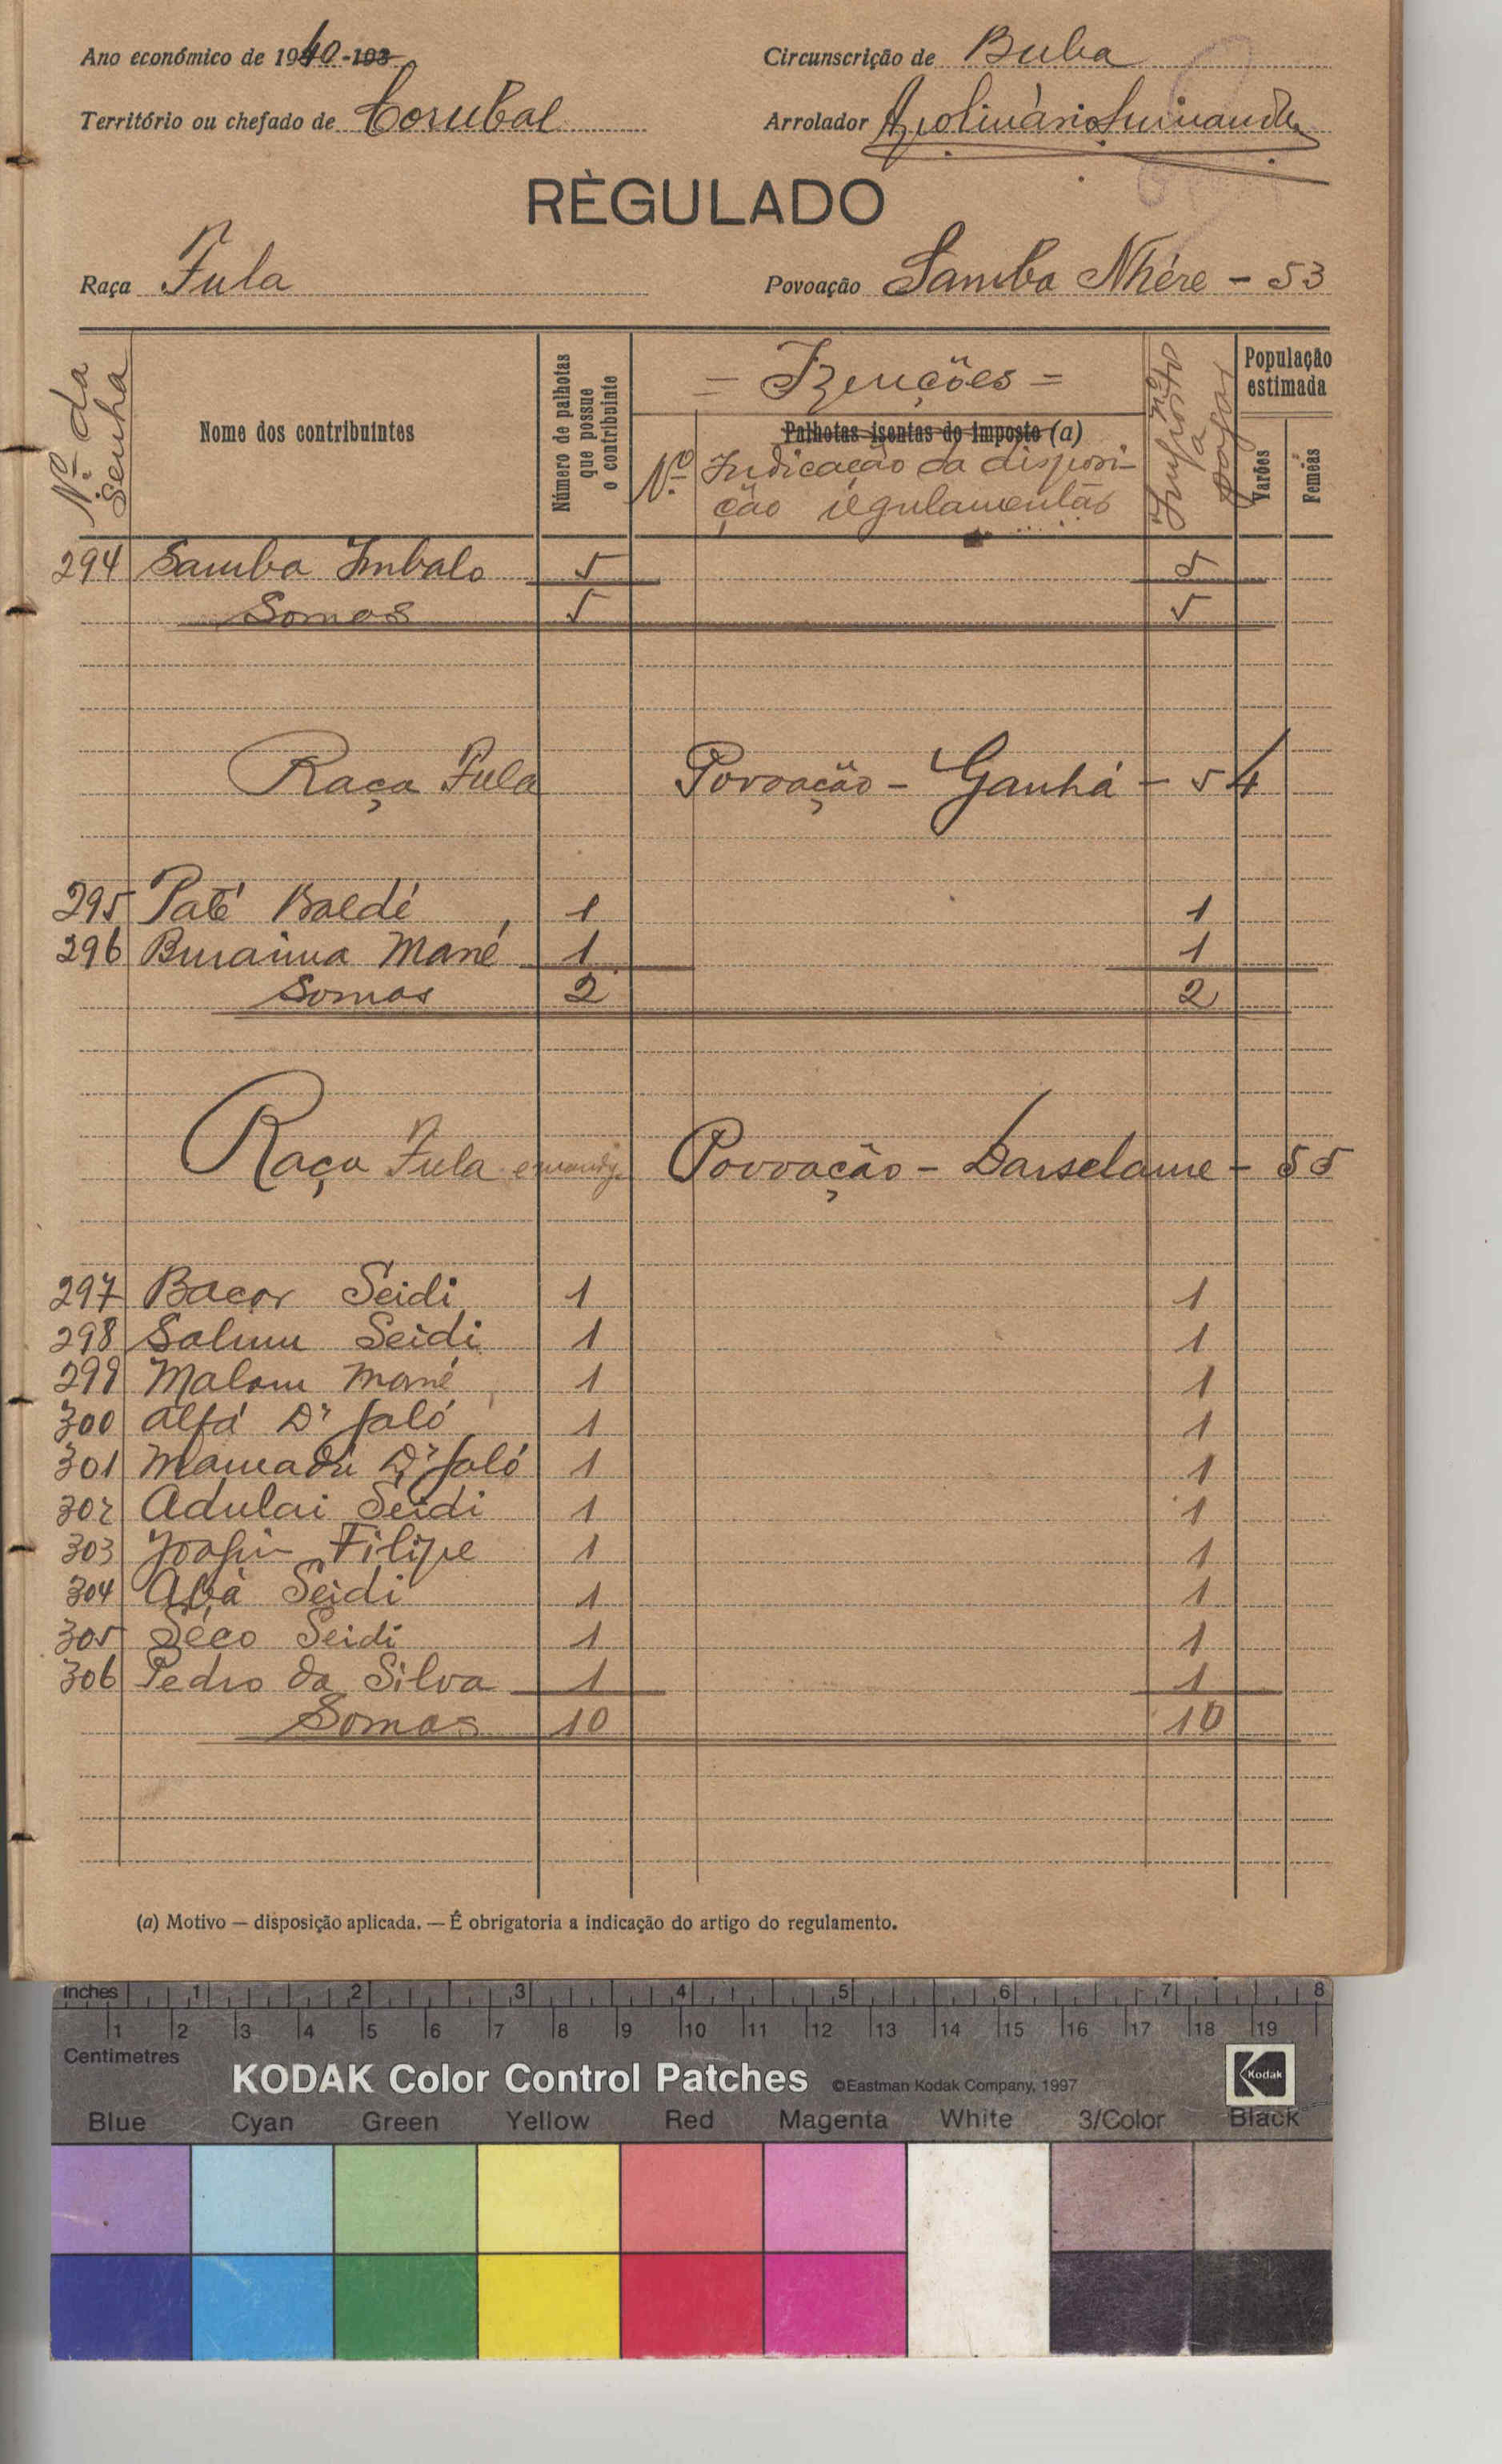 Ano económico de 1940-193
Circunscrição de Buba
Território ou chefado de Corubal
Arrolador
RÈGULADO
Raça Fula
Povoação Samba Nhére - 53
Nº da Senha
Nome dos contribuintes
Número de palhotas que possue o contribuinte
= Izenções =
Palhotas isentas do imposto (a)
Nº
Indicação da disposi-
ção regulamentar
Imposto a pagar
População estimada
Varões
Femeas
294 Samba Imbalo 5 5
Somas 5 5
Raça Fula Povoação - Ganhá - 54
295 Paté Baldé 1 1
296 Buraima Mané 1 1
Somas 2 2
Raça Fula e mandg. Povoação - Darselame - 55
297 Bacar Seidi 1 1
298 Salum Seidi 1 1
299 Malam Mané 1 1
300 Alfá Dʼjaló 1 1
301 Mamadú Dʼjaló 1 1
302 Adulai Seidi 1 1
303 Filipe 1 1
304 Seidi 1 1
305 Séco Seidi 1 1
306 Pedro da Silva 1 1
Somas 10 10
(a) Motivo — disposição aplicada. — É obrigatoria a indicação do artigo do regulamento.
Inches 1 2 3 4 5 6 7 8
1 2 3 4 5 6 7 8 9 10 11 12 13 14 15 16 17 18 19
Centimetres
KODAK Color Control Patches ©Eastman Kodak Company, 1997 Kodak
Blue Cyan Green Yellow Red Magenta White 3/Color Black